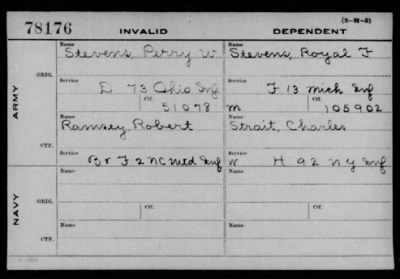 78176 INVALID DEPENDENT (3-H-5)
Name Stevens, Perry W Name Stevens, Royal F
ARMY
ORIG.
Service D 73 Ohio Inf Service F 13 Mich Inf
Ctf. 51078 m Ctf. 105902
Name Ramsey, Robert Name Strait, Charles
CTF.
Service B & F 2 NC Mtd Inf Service W H 92 NY Inf
Name Name
NAVY
ORIG. Ctf. Ctf.
Name Name
CTF.